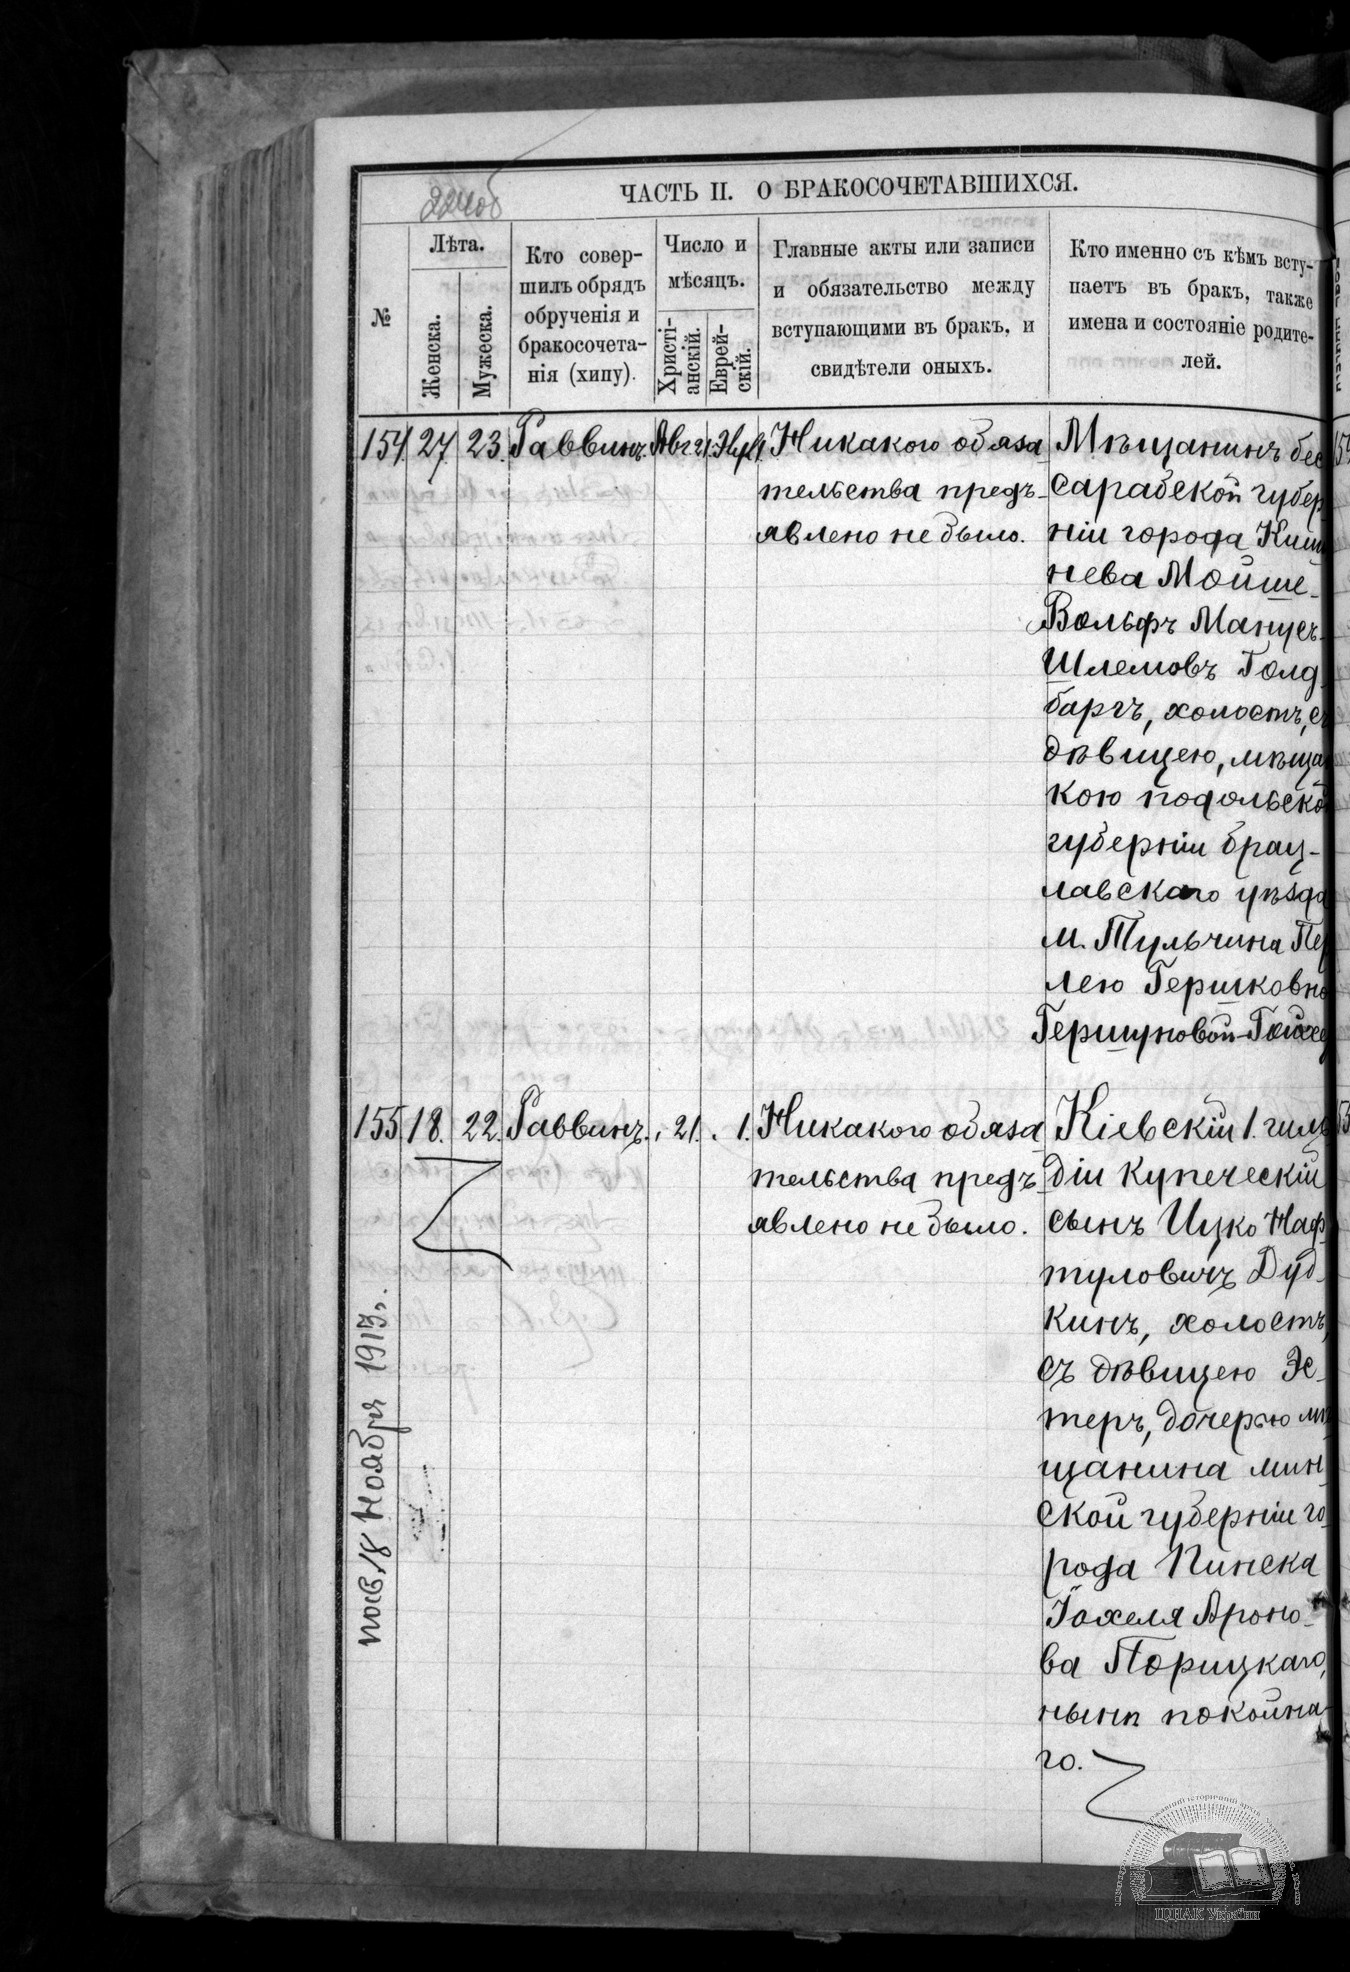 224об
ЧАСТЬ II. О БРАКОСОЧЕТАВШИХСЯ.
№
Лѣта.
Женска.
Мужеска.
Кто совер-
шилъ обрядъ
обрученія и
бракосочета-
нія (хипу).
Число и
мѣсяцъ.
Христі-
анскій.
Еврей-
скій.
Главные акты или записи
и обязательство между
вступающими въ бракъ, и
свидѣтели оныхъ.
Кто именно съ кѣмъ всту-
паетъ въ бракъ, также
имена и состояніе родите-
лей.
154 27. 23. Раввинъ. Авг 21.
Никакого обяза
тельства предъ-
явлено не было.
Мѣщанинъ бес
сарабской губер
ніи города Киши
нева Мойше-
Вольфъ Манусъ-
Шлемовъ Голд
баргъ, холостъ, съ
дѣвицею, мѣща
кою подольско
губерніи брац-
лавскаго уѣзда
м. Тульчина Пе
лею Гершковно
Гершуновой-Гойхе
155 18. 22. Раввинъ. " 21. " 1.
Никакого обяза
тельства предъ
явлено не было.
Кіевскій 1. гиль
діи купеческій
сынъ Ицко Наф
туловичъ Дуб-
кинъ, холостъ,
съ дѣвицею Эс-
теръ, дочерью мѣ
щанина мин
ской губерніи го
рода Пинска
Іохеля Ароно-
ва Порицкаго,
нынѣ покойна-
го.
18 Ноября 1913г.
ЦДІАК України